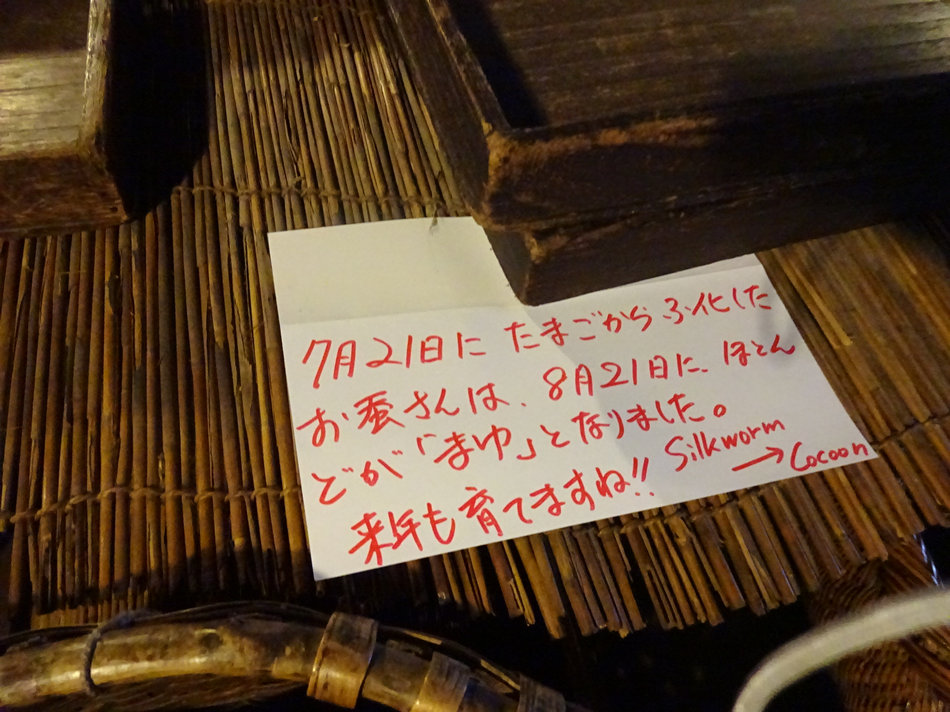 7月21日に たまごからふ化した
お蚕さんは、8月21日に、ほとん
どが「まゆ」となりました。
来年も育てますね!! Silkworm
→ Cocoon